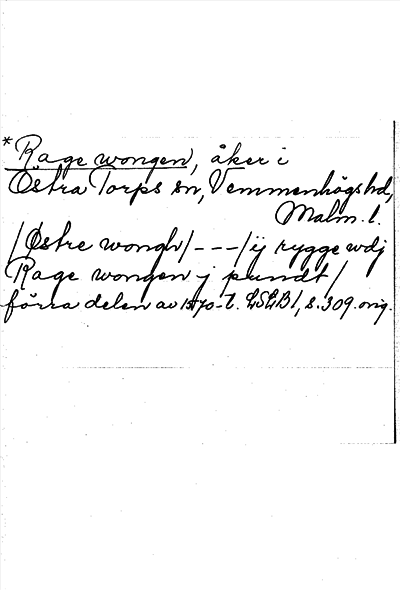 * Rage wongen, åker i
Östra Torps sn, Vemmenhögs hd,
Malm. l.
/Østre wongh/---/ij rygge wdj
Rage wongen j pundt/
förra delen av 1570-t. LSLB 1, s. 309. orig.